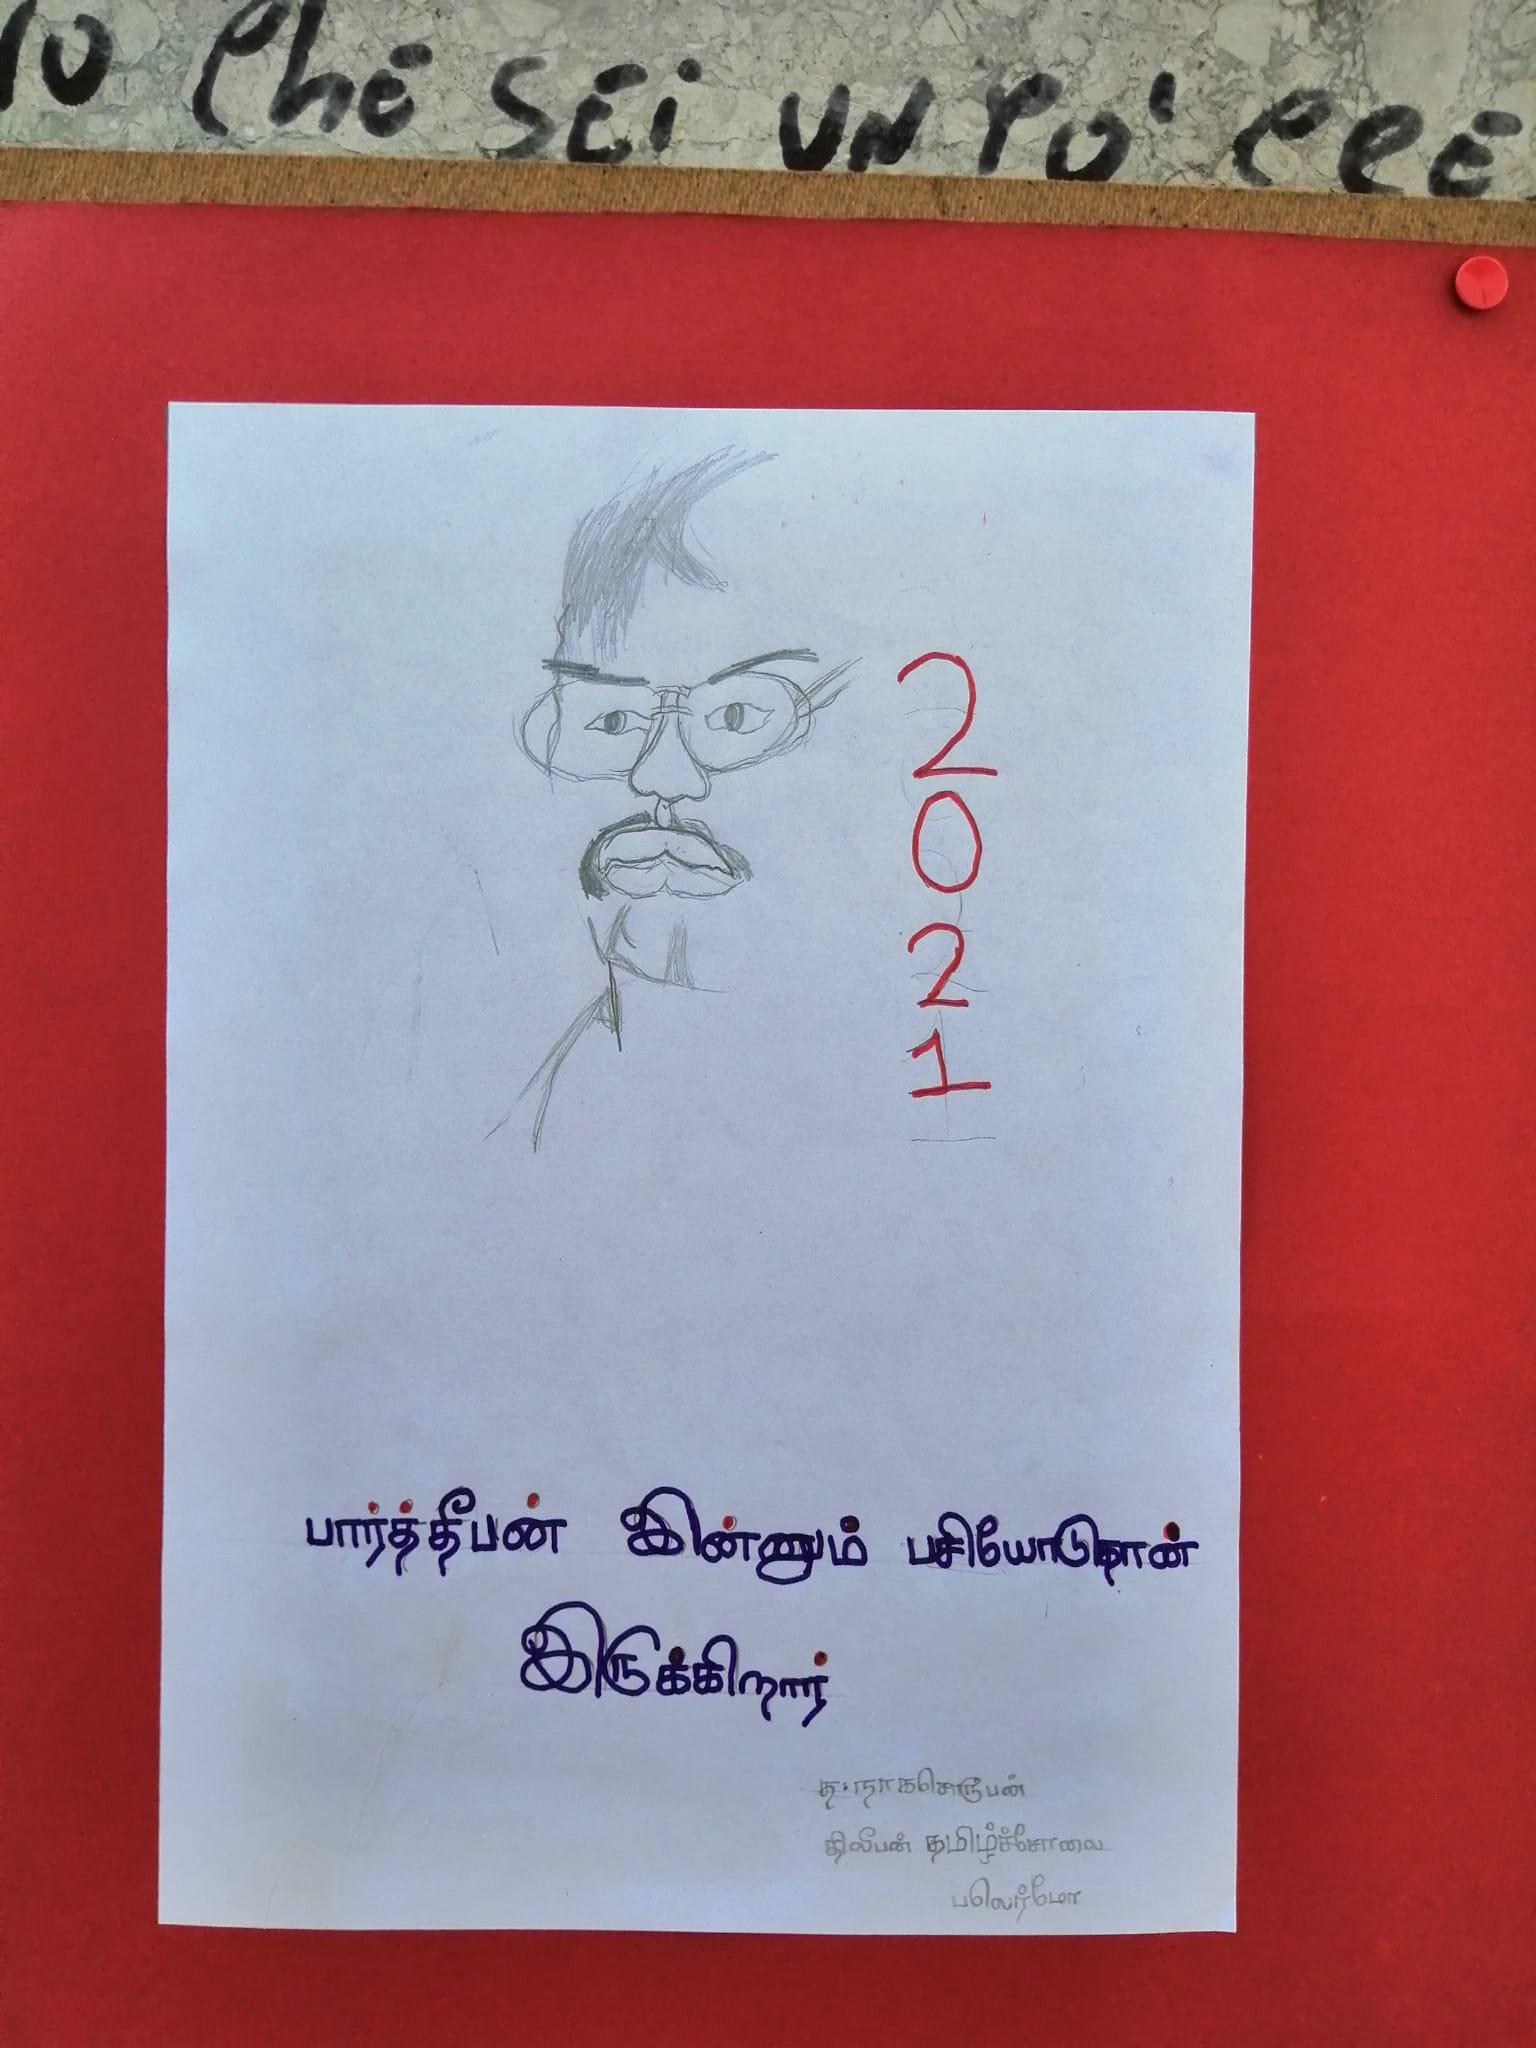 che sei un po'
2
0
2
1
பார்த்தீபன் இன்னும் பசியோடுதான்
இருக்கிறார்
த. நாகசொரூபன்
திலீபன் தமிழ்ச்சோலை
பலெர்மோ